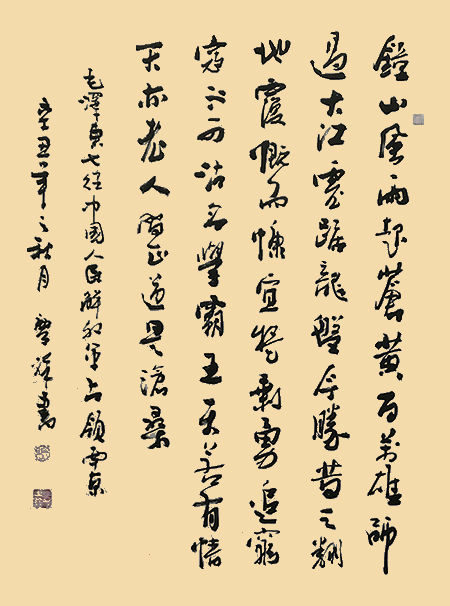 鐘山風雨起蒼黃百萬雄師
過大江虎踞龍盤今勝昔天翻
地覆慨而慷宜將剩勇追窮
寇不可沽名學霸王天若有情
天亦老人間正道是滄桑
毛澤東七律中國人民解放軍占領南京
辛丑年之秋月書